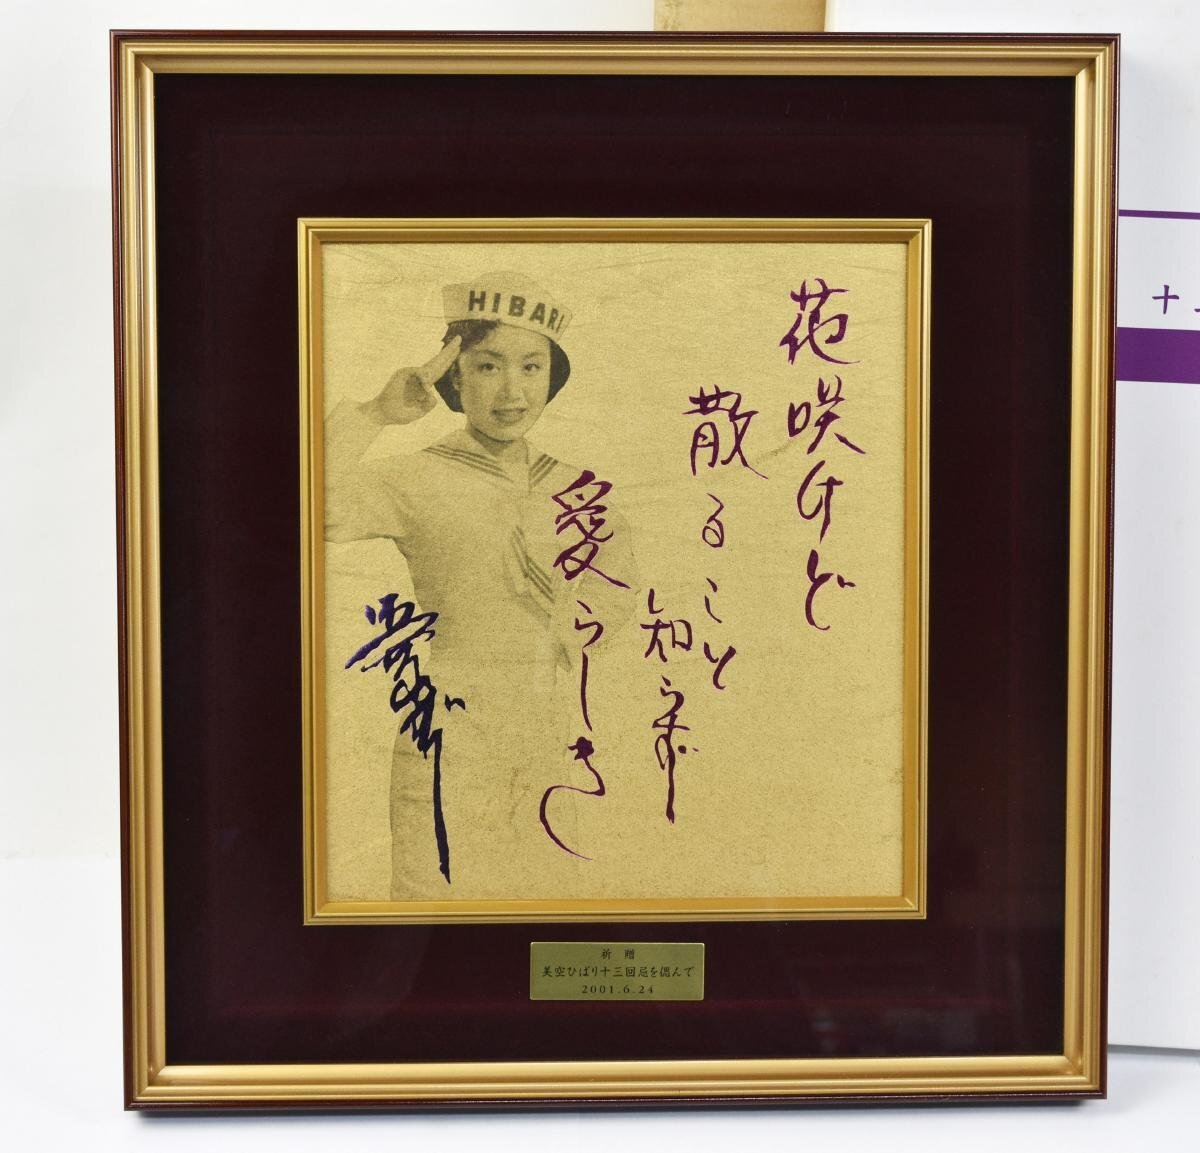 HIBARI
花咲けど
散ること
知らず
愛らしき
祈 贈
美空ひばり十三回忌を偲んで
2001.6.24
十